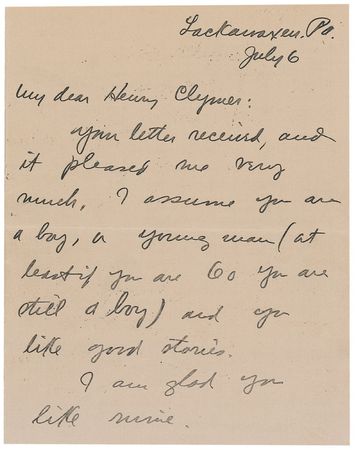 Lackawaxen. Pa.
July 6
My dear Henry Clymer:
Your letter received, and
it pleased me very
much. I assume you are
a boy, or young man (at
least if you are 60 you are
still a boy) and you
like good stories.
I am glad you
like mine.